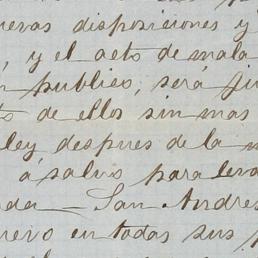 nuevas disposiciones y
, y el acto de mala
publico, será ju
to de ellos sin mas
ley despues de la m
á salvo para leva
da — San Andres
nuevo en todas sus p